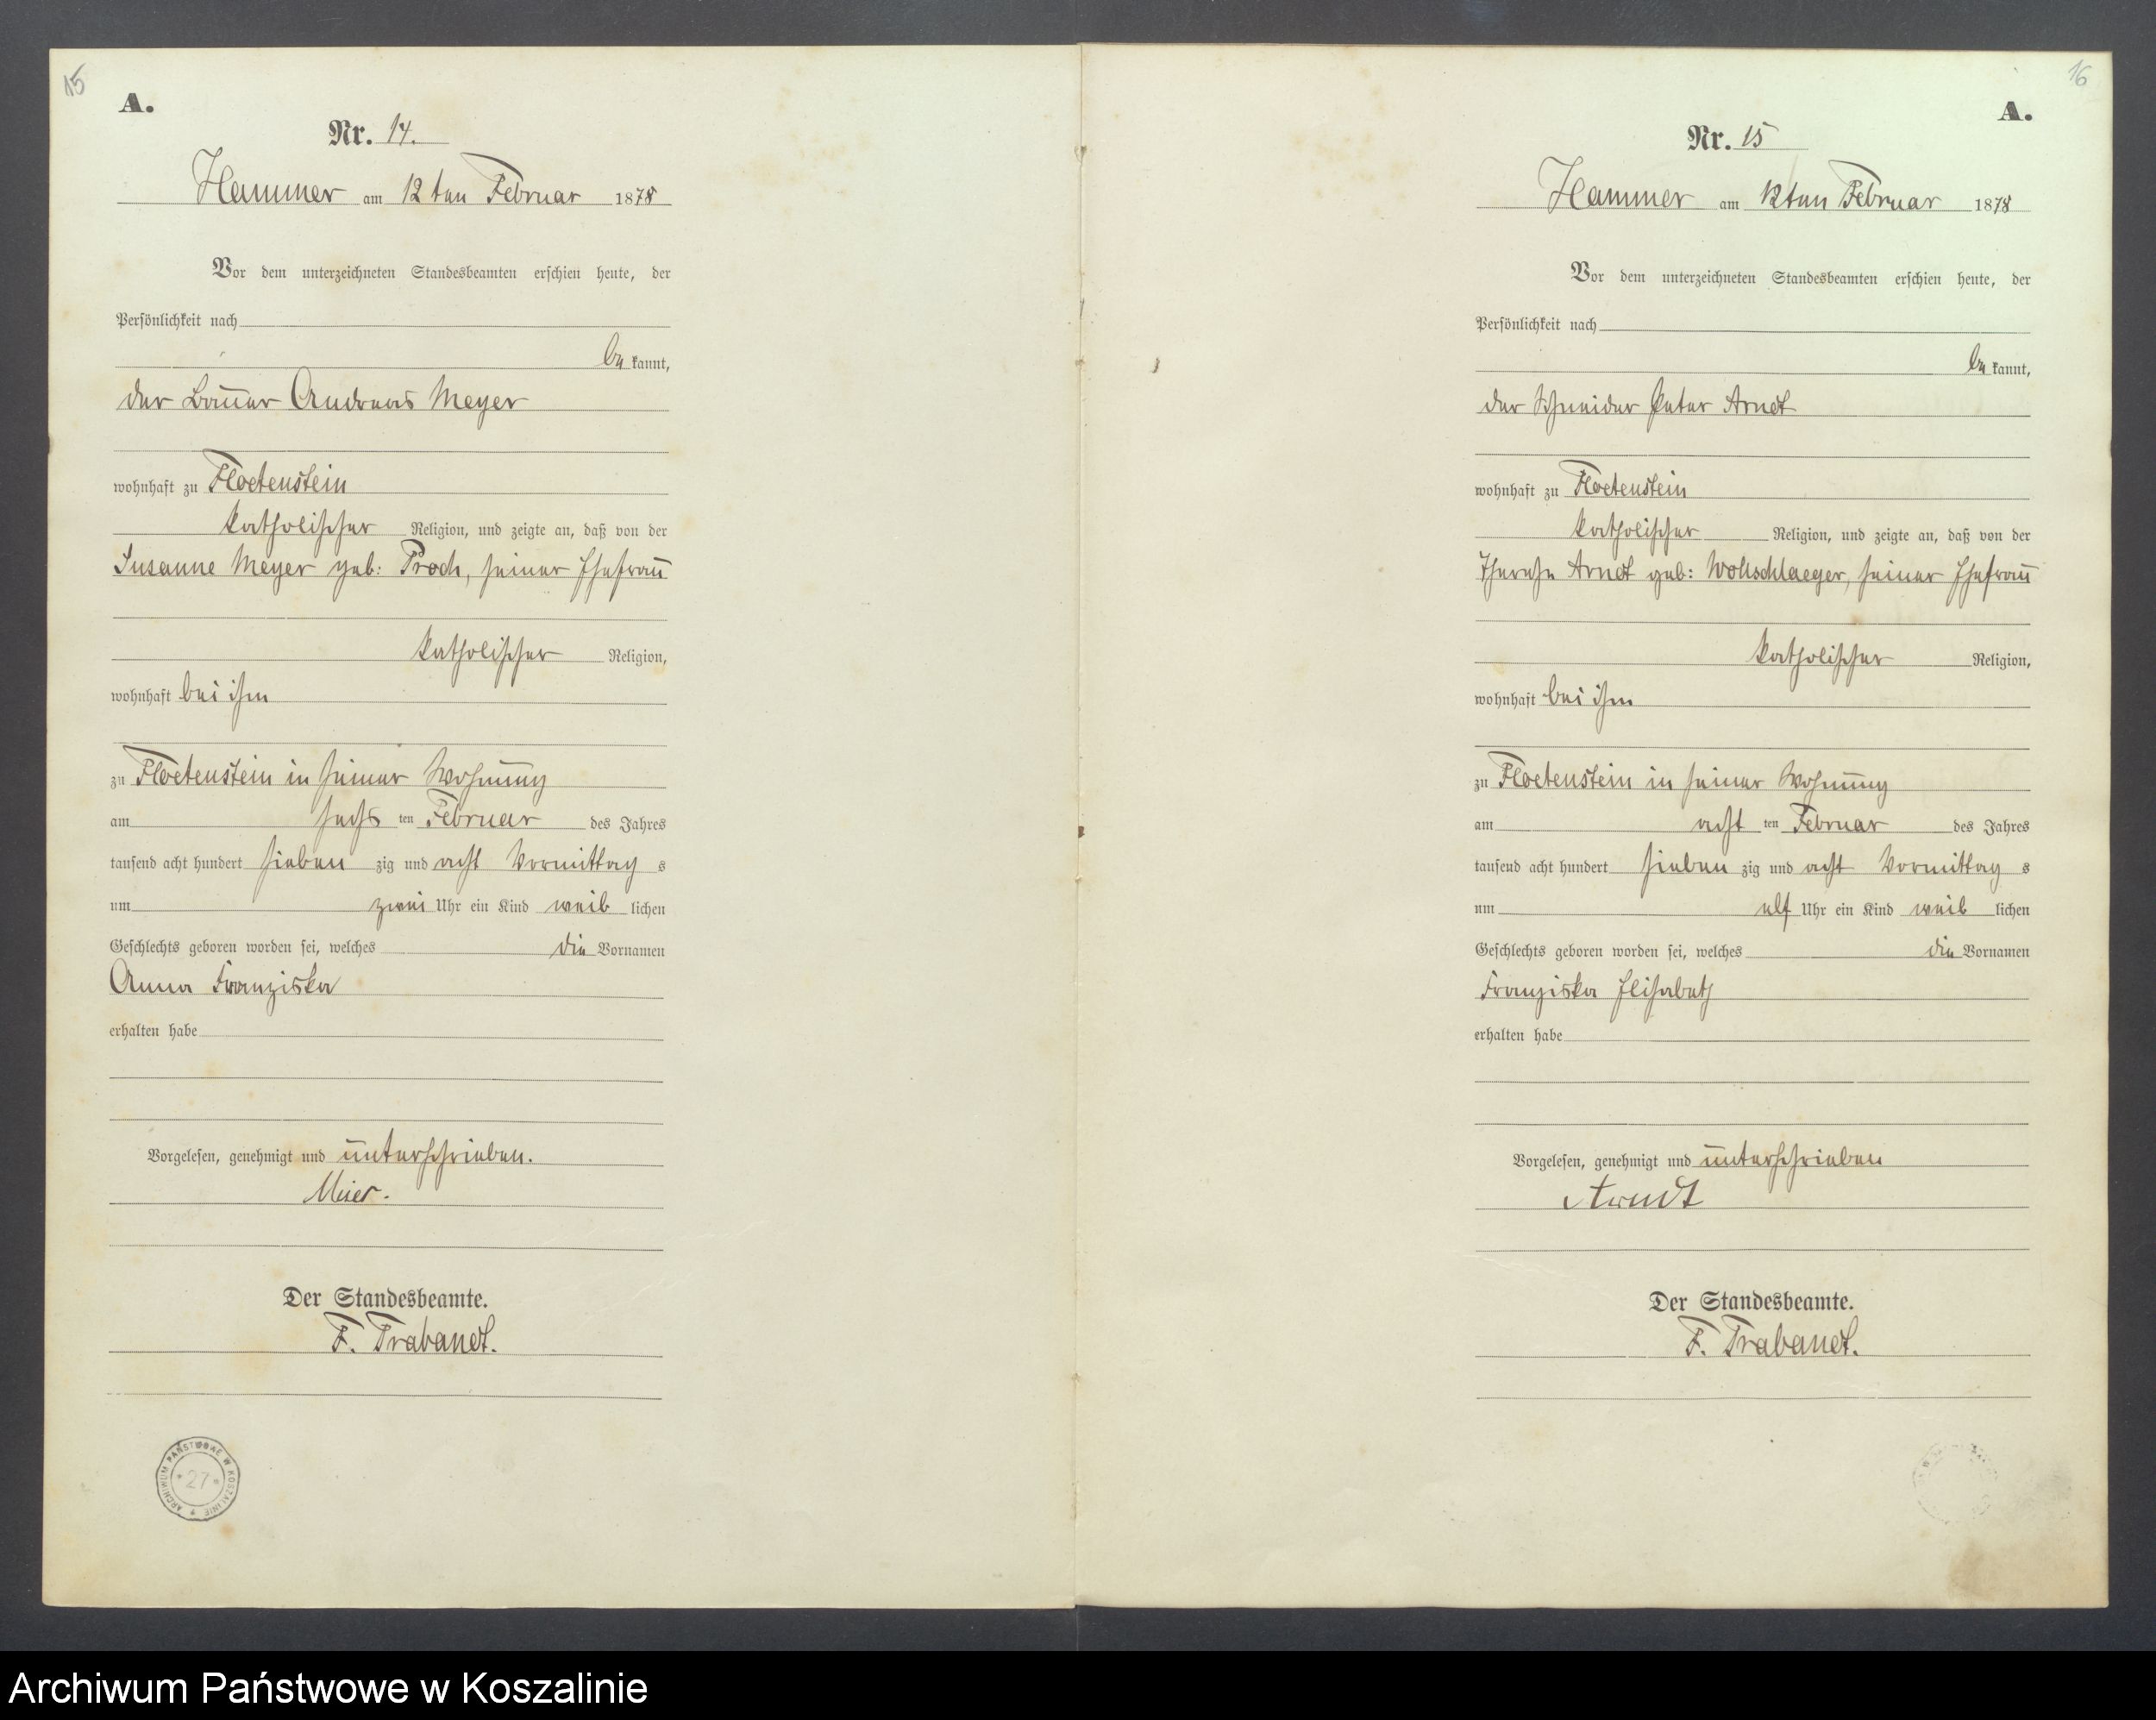 15
A.
Nr. 14.
Hammer am 12ten Februar 1878
Vor dem unterzeichneten Standesbeamten erschien heute, der
Persönlichkeit nach
be kannt,
der Bauer Andreas Meyer
wohnhaft zu Floetenstein
katholischer Religion, und zeigte an, daß von der
Susanne Meyer geb: Proch, seiner Ehefrau
katholischer Religion,
wohnhaft bei ihm
zu Floetenstein in seiner Wohnung
am sechs ten Februar des Jahres
tausend acht hundert sieben zig und acht Vormittag s
um zwei Uhr ein Kind weib lichen
Geschlechts geboren worden sei, welches die Vornamen
Anna Franziska
erhalten habe
Vorgelesen, genehmigt und unterschrieben.
Meier.
Der Standesbeamte.
F. Trabandt.
ARCHIWUM PAŃSTWOWE W KOSZALINIE
* 27 *
16
A.
Nr. 15
Hammer am 12ten Februar 1878
Vor dem unterzeichneten Standesbeamten erschien heute, der
Persönlichkeit nach
be kannt,
der Schneider Peter Arndt
wohnhaft zu Floetenstein
katholischer Religion, und zeigte an, daß von der
Therese Arndt geb: Wollschlaeger, seiner Ehefrau
katholischer Religion,
wohnhaft bei ihm
zu Floetenstein in seiner Wohnung
am acht ten Februar des Jahres
tausend acht hundert sieben zig und acht Vormittag s
um elf Uhr ein Kind weib lichen
Geschlechts geboren worden sei, welches die Vornamen
Franziska Elisabeth
erhalten habe
Vorgelesen, genehmigt und unterschrieben
Arndt
Der Standesbeamte.
F. Trabandt.
Archiwum Państwowe w Koszalinie